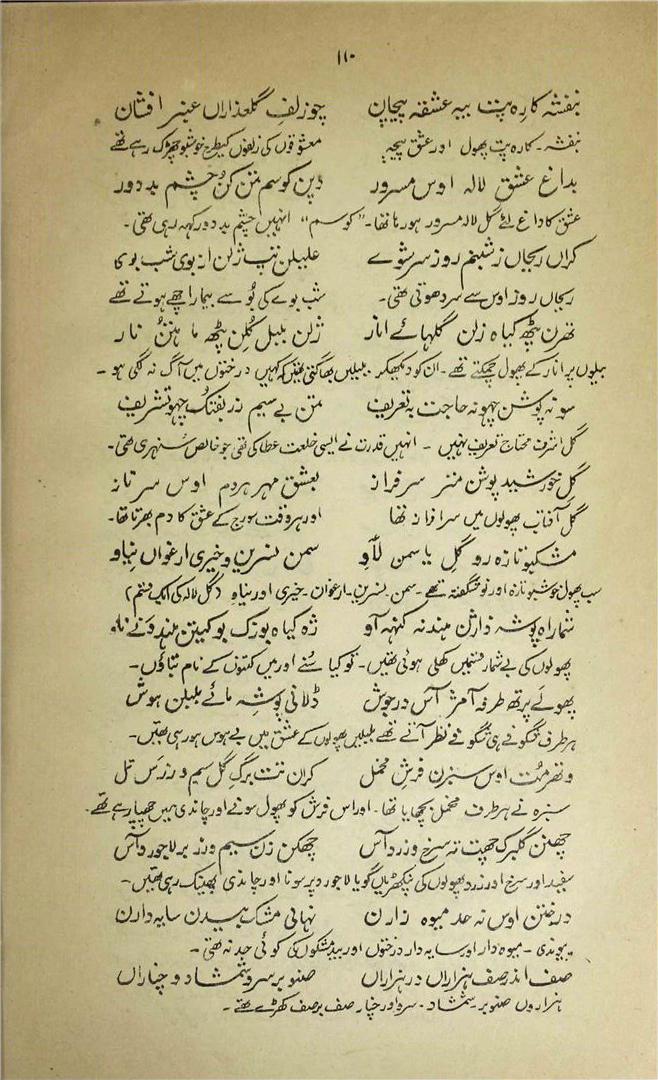 ۱۱۰
بنفشہ کارہ پت بیہ عشقہ پیچاں چو زلفِ گلعذاراں عنبر افشان
بنفشہ ۔ کارہ پت پھول اور عشق پیچہ معشوقوں کی زلفوں کیطرح خوشبو چھڑک رہے تھے
بداغِ عشق لالہ اوس مسرور دپن کوسم متن کُن چشم بد دور
عشق کا داغ لئے گل لالہ مسرور ہو رہا تھا۔ "کوسم" انہیں چشم بد دور کہہ رہی تھی۔
کراں ریحاں ز شبنم روز سر شوے علیلن تپ ژلن از بوی شب بوی
ریحاں روز اوس سے سر دھوتی تھی۔ شب بوے کی بُو سے بیمار اچھے ہوتے تھے
تھرن پٹھ کیاہ زلن گلہائے انار ژلن بلبل گلن پٹھ ما ہتن نار
بیلوں پر انار کے پھول چمکتے تھے۔ ان کو دیکھکر بلبلیں بھاگتی تھیں کہ کہیں درختوں میں آگ نہ لگی ہو۔
سونہ پوشن چھونہ حاجت بہ تعریف متن بے سیم زربفتک چھو تشریف
گل اشرف محتاج تعریف نہیں ۔ انہیں قدرت نے ایسی خلعت عطا کی تھی جو خالص سنہری تھی۔
گلِ خورشید پوشن منز سرفراز بعشق مہر ہردم اوس سرتاز
گل آفتاب پھولوں میں سرافراز تھا اور ہر وقت سورج کے عشق کا دم بھرتا تھا۔
مشکبو تازہ رو گل یاسمن لاو سمن نسرین و خیری ارغواں نیاو
سب پھول خوشبو تازہ اور نوشگفتہ تھے۔ سمن۔ نسرین۔ ارغوان۔ خیری اور نیاو (گل لالہ کی ایک قسم)
شماراہ پوشہ ذاژن ہندنہ کنہہ آو ژہ کیاہ بوزک بو کیتن ہند ونے ناو
پھولوں کی بے شمار قسمیں کھلی ہوئی تھیں۔ تو کیا سنے اور میں کتنوں کے نام بتاؤں۔
پھولے پرتھ طرفہ آمژ آس در جوش ڈلانی پوشہ مائے بلبلن ہوش
ہر طرف شگوفے ہی شگوفے نظر آتے تھے بلبلیں پھولوں کے عشق میں بے ہوش ہو رہی تھیں۔
وتھرمت اوس سبزن فرشِ مخمل کران تت برگِ گل سیم و زرس تل
سبزہ نے ہر طرف مخمل بچھایا تھا۔ اور اس فرش کو پھول سونے اور چاندی میں چھپا رہے تھے۔
چھتن گلبرگ چھپت تہ سرخ و زرد آس چھکن زن سیم و زر بر لاجورد آس
سفید اور سرخ اور زرد پھولوں کی پنکھڑیاں گویا لاجورد پر سونا اور چاندی پھینک رہی تھیں۔
درختن اوس نہ حد میوہ زارن نہالی مشک بیدن سایہ دارن
پیوندی۔ میوہ دار اور سایہ دار درختوں اور بید مشکوں کی کوئی حد نہ تھی۔
صف اندر صف ہزاراں در ہزاراں صنوبر سرو شمشاد و چناراں
ہزاروں صنوبر۔ شمشاد۔ سرو اور چنار صف بر صف کھڑے تھے۔